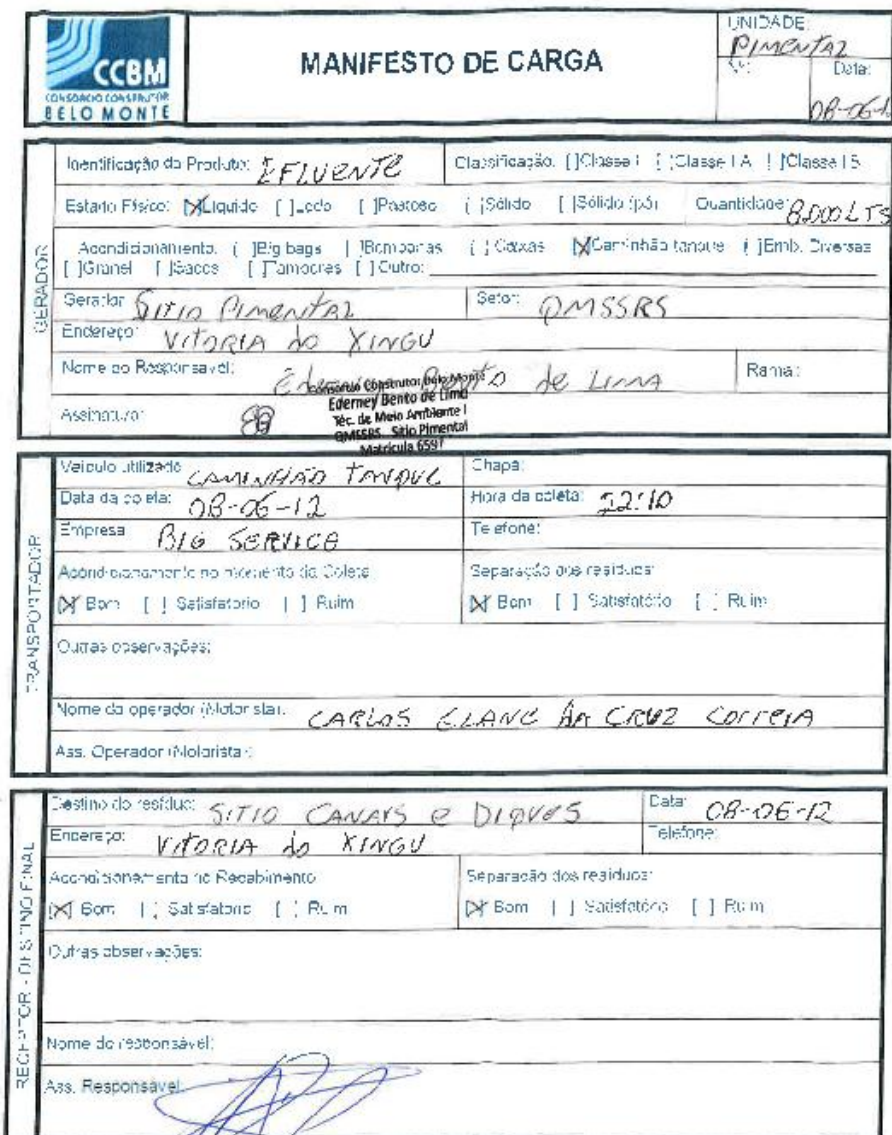 CCBM
CONSÓRCIO CONSTRUTOR
BELO MONTE
MANIFESTO DE CARGA
UNIDADE:
PIMENTAL
Nº: Data:
08-06-12
GERADOR
Identificação do Produto: EFLUENTE Classificação: [ ]Classe I [ ]Classe II A [ ]Classe II B
Estado Físico: [X]Líquido [ ]Lodo [ ]Pastoso [ ]Sólido [ ]Sólido (pó) Quantidade: 8.000 LTS
Acondicionamento: [ ]Big bags [ ]Bombonas [ ]Caixas [X]Caminhão tanque [ ]Emb. Diversas
[ ]Granel [ ]Sacos [ ]Tambores [ ]Outro:
Gerador: SITIO PIMENTAL Setor: QMSSRS
Endereço: VITORIA do XINGU
Nome do Responsável: Bento de Lima Ramal:
Consórcio Construtor Belo Monte
Ederney Bento de Lima
Téc. de Meio Ambiente I
QMSSRS Sítio Pimental
Matrícula 6597
Assinatura:
TRANSPORTADOR
Veículo utilizado: CAMINHÃO TANQUE Chapa:
Data da coleta: 08-06-12 Hora da coleta: 22:10
Empresa: BIG SERVICE Telefone:
Acondicionamento no momento da Coleta: Separação dos resíduos:
[X] Bom [ ] Satisfatório [ ] Ruim [X] Bom [ ] Satisfatório [ ] Ruim
Outras observações:
Nome do operador (Motorista): CARLOS ELANE DA CRUZ CORREIA
Ass. Operador (Motorista):
RECEPTOR - DESTINO FINAL
Destino do resíduo: SITIO CANAIS e DIQUES Data: 08-06-12
Endereço: VITORIA do XINGU Telefone:
Acondicionamento no Recebimento: Separação dos resíduos:
[X] Bom [ ] Satisfatório [ ] Ruim [X] Bom [ ] Satisfatório [ ] Ruim
Outras observações:
Nome do responsável:
Ass. Responsável: